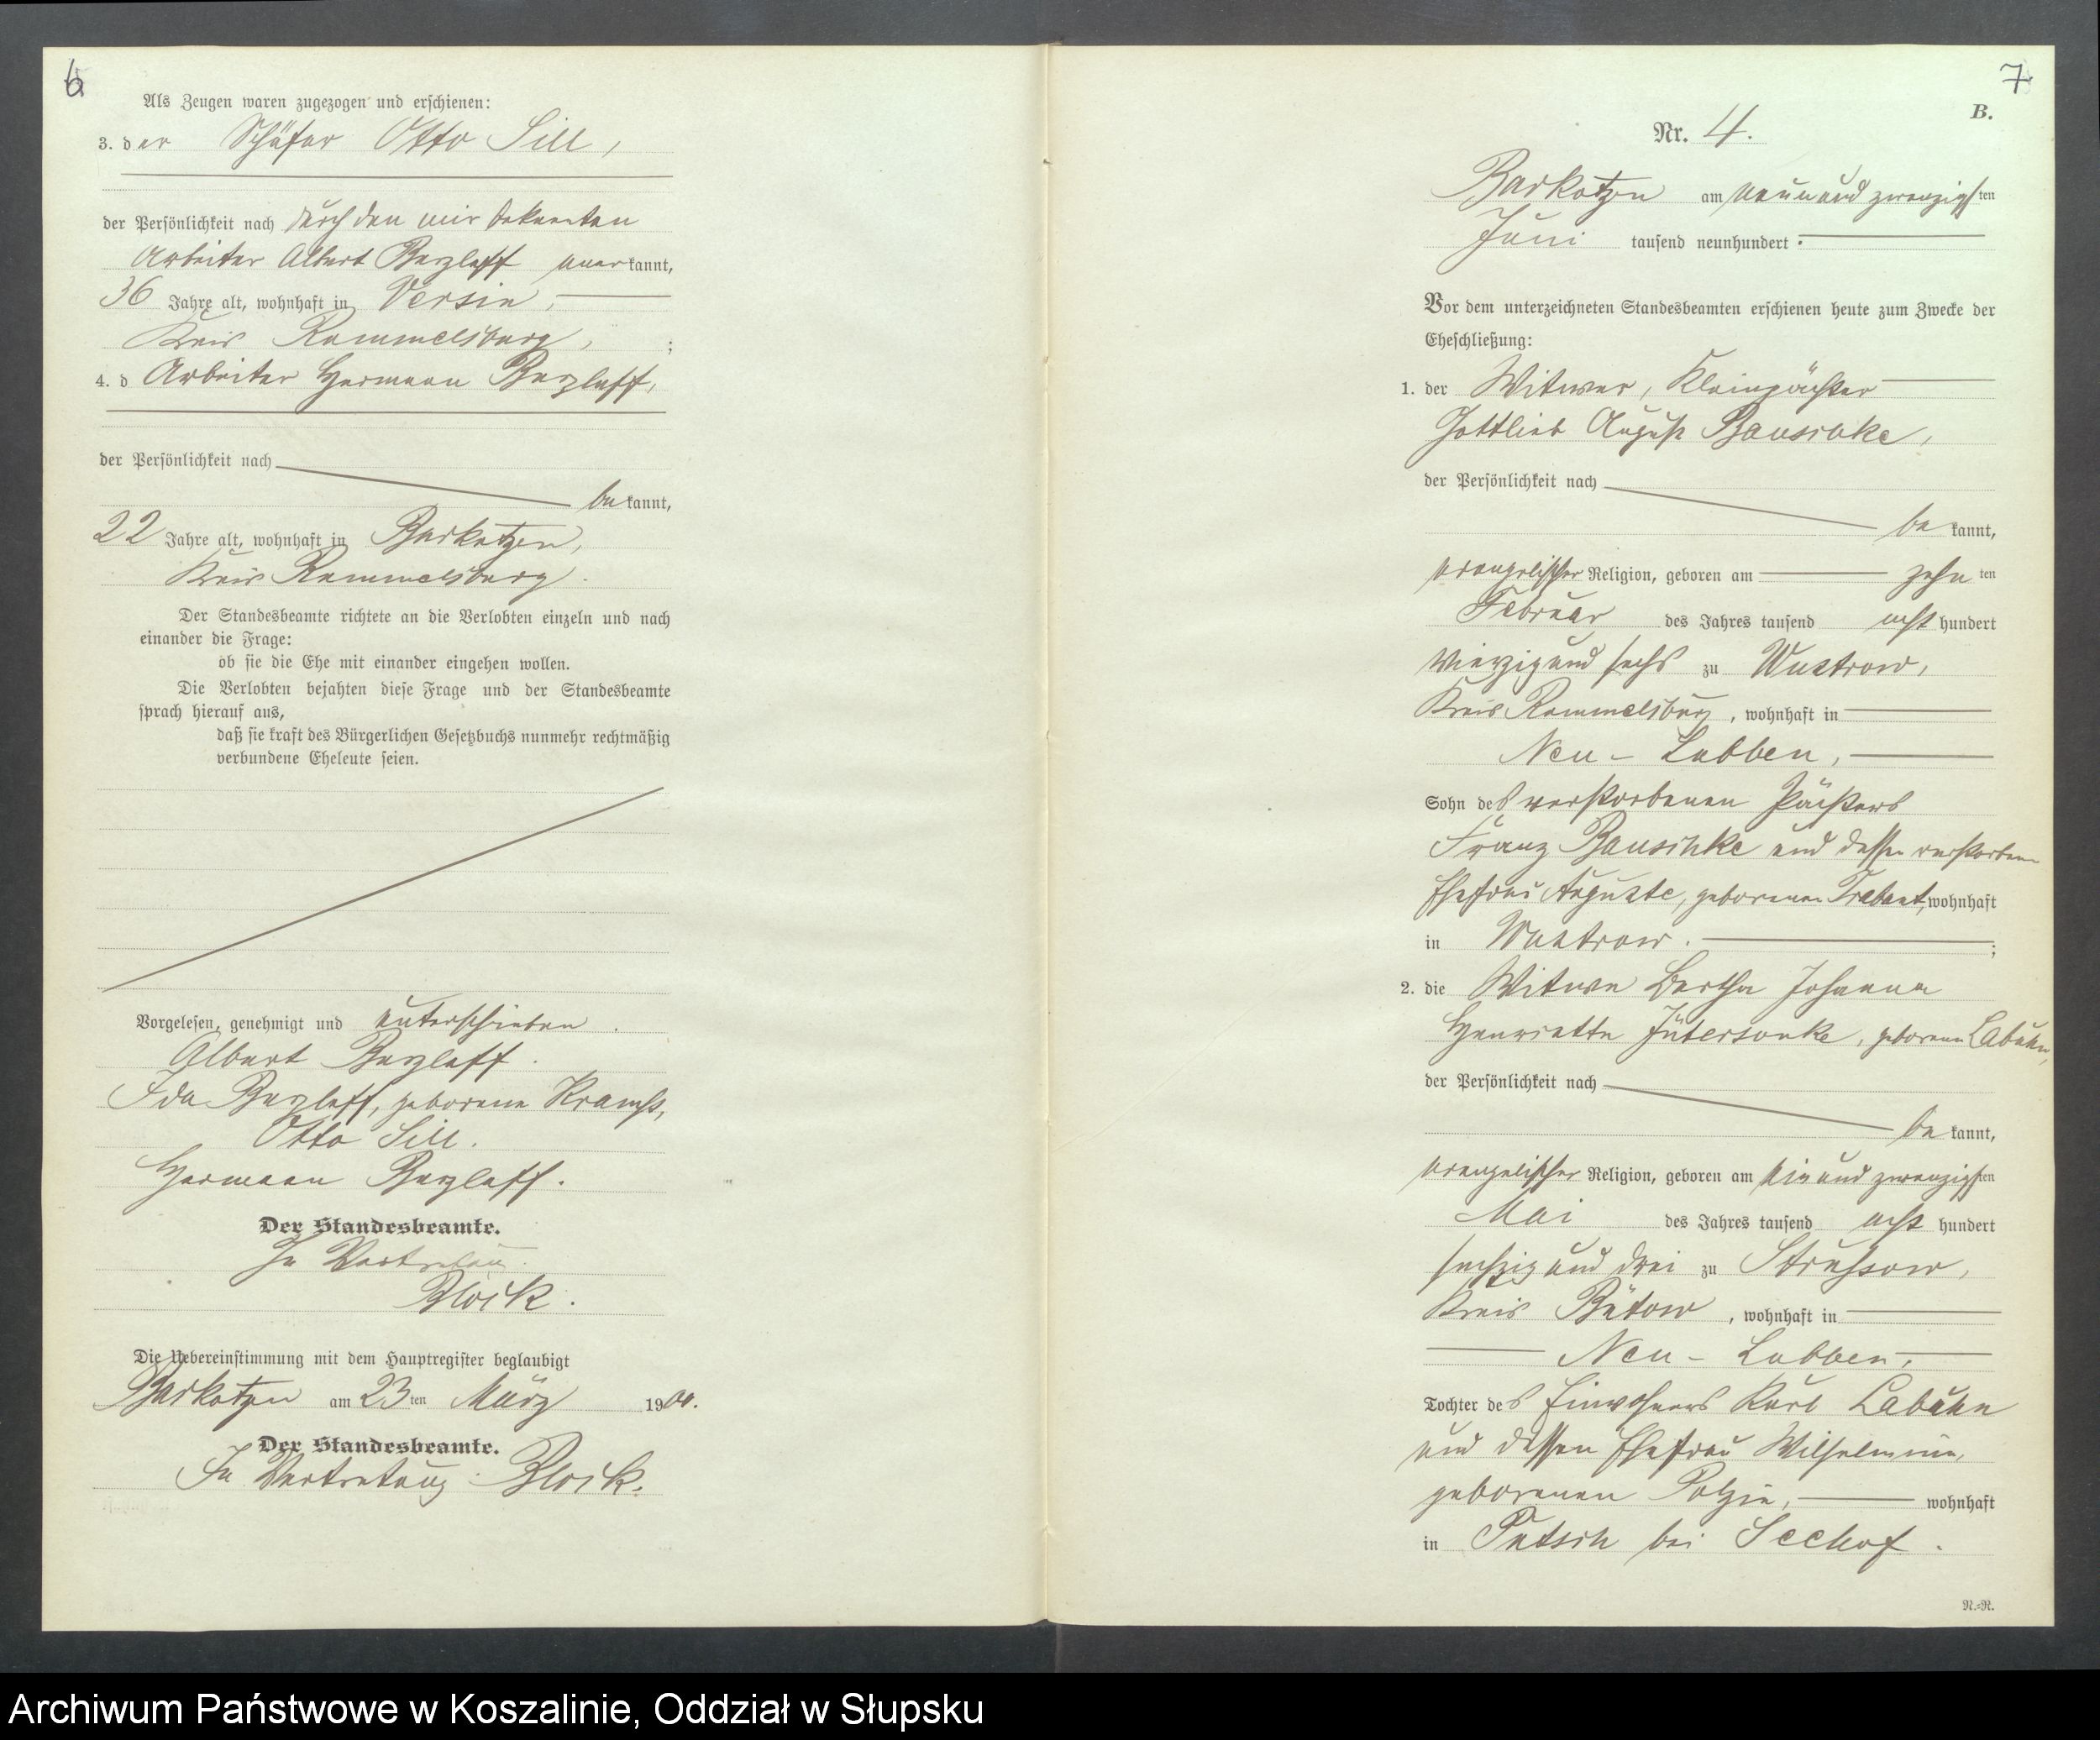 6
Als Zeugen waren zugezogen und erschienen:
3. der Schäfer Otto Sill,
der Persönlichkeit nach durch den mir bekannten
Arbeiter Albert Barzlaff anerkannt,
36 Jahre alt, wohnhaft in Versin,
Kreis Rummelsburg, ;
4. d Arbeiter Hermann Barzlaff,
der Persönlichkeit nach
bekannt,
22 Jahre alt, wohnhaft in Barkotzen,
Kreis Rummelsburg.
Der Standesbeamte richtete an die Verlobten einzeln und nach
einander die Frage:
ob sie die Ehe mit einander eingehen wollen.
Die Verlobten bejahten diese Frage und der Standesbeamte
sprach hierauf aus,
daß sie kraft des Bürgerlichen Gesetzbuchs nunmehr rechtmäßig
verbundene Eheleute seien.
Vorgelesen, genehmigt und unterschrieben.
Albert Barzlaff.
Ida Barzlaff, geborene
Otto Sill.
Hermann Barzlaff.
Der Standesbeamte.
In Vertretung.
Block.
Die Uebereinstimmung mit dem Hauptregister beglaubigt
Barkotzen am 23ten März 1900.
Der Standesbeamte.
In Vertretung: Block.
7
B.
Nr. 4.
Barkotzen am neunund zwanzigsten
Juni tausend neunhundert.
Vor dem unterzeichneten Standesbeamten erschienen heute zum Zwecke der
Eheschließung:
1. der Witwer, Kleinpächter
Gottlieb August Bauschke,
der Persönlichkeit nach
bekannt,
evangelischer Religion, geboren am zehnten
Februar des Jahres tausend achthundert
vierzig und sechs zu Wustrow,
Kreis Rummelsburg, wohnhaft in
Neu-Lubben,
Sohn des verstorbenen Pächters
Franz Bauschke und dessen verstorbenen
Ehefrau Auguste, geborenen Trabant, wohnhaft
in Wustrow. ;
2. die Witwe Bertha Johanna
Henriette Jütersonke, geborene Labuhn,
der Persönlichkeit nach
bekannt,
evangelischer Religion, geboren am ein und zwanzigsten
Mai des Jahres tausend acht hundert
sechzig und drei zu Strussow,
Kreis Bütow, wohnhaft in
Neu-Lubben,
Tochter des Einwohners Karl Labuhn
und dessen Ehefrau Wilhelmine,
geborenen Polzin, wohnhaft
in bei Seehof.
N.=R.
Archiwum Państwowe w Koszalinie, Oddział w Słupsku